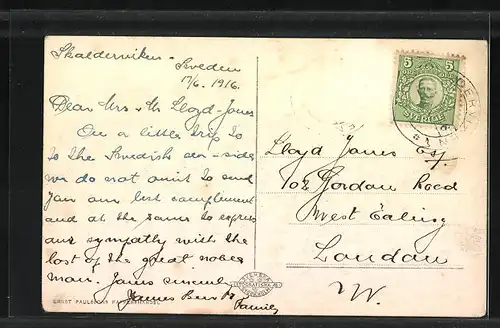 Skalderviken -
Sweden
17/6. 1916.
Dear Mrs & Mr Lloyd-Jones
On a little trip to
to the Swedish sea-side
we do not omit to send
you our best compliment
and at the same to express
our sympathy with the
lost of the great nobes
man. Yours sincerely
James Family
ERNST PAULSSONS
5 5
SVERIGE
Lloyd Jones Esq
102 Gordon Road
West Ealing
London
W.